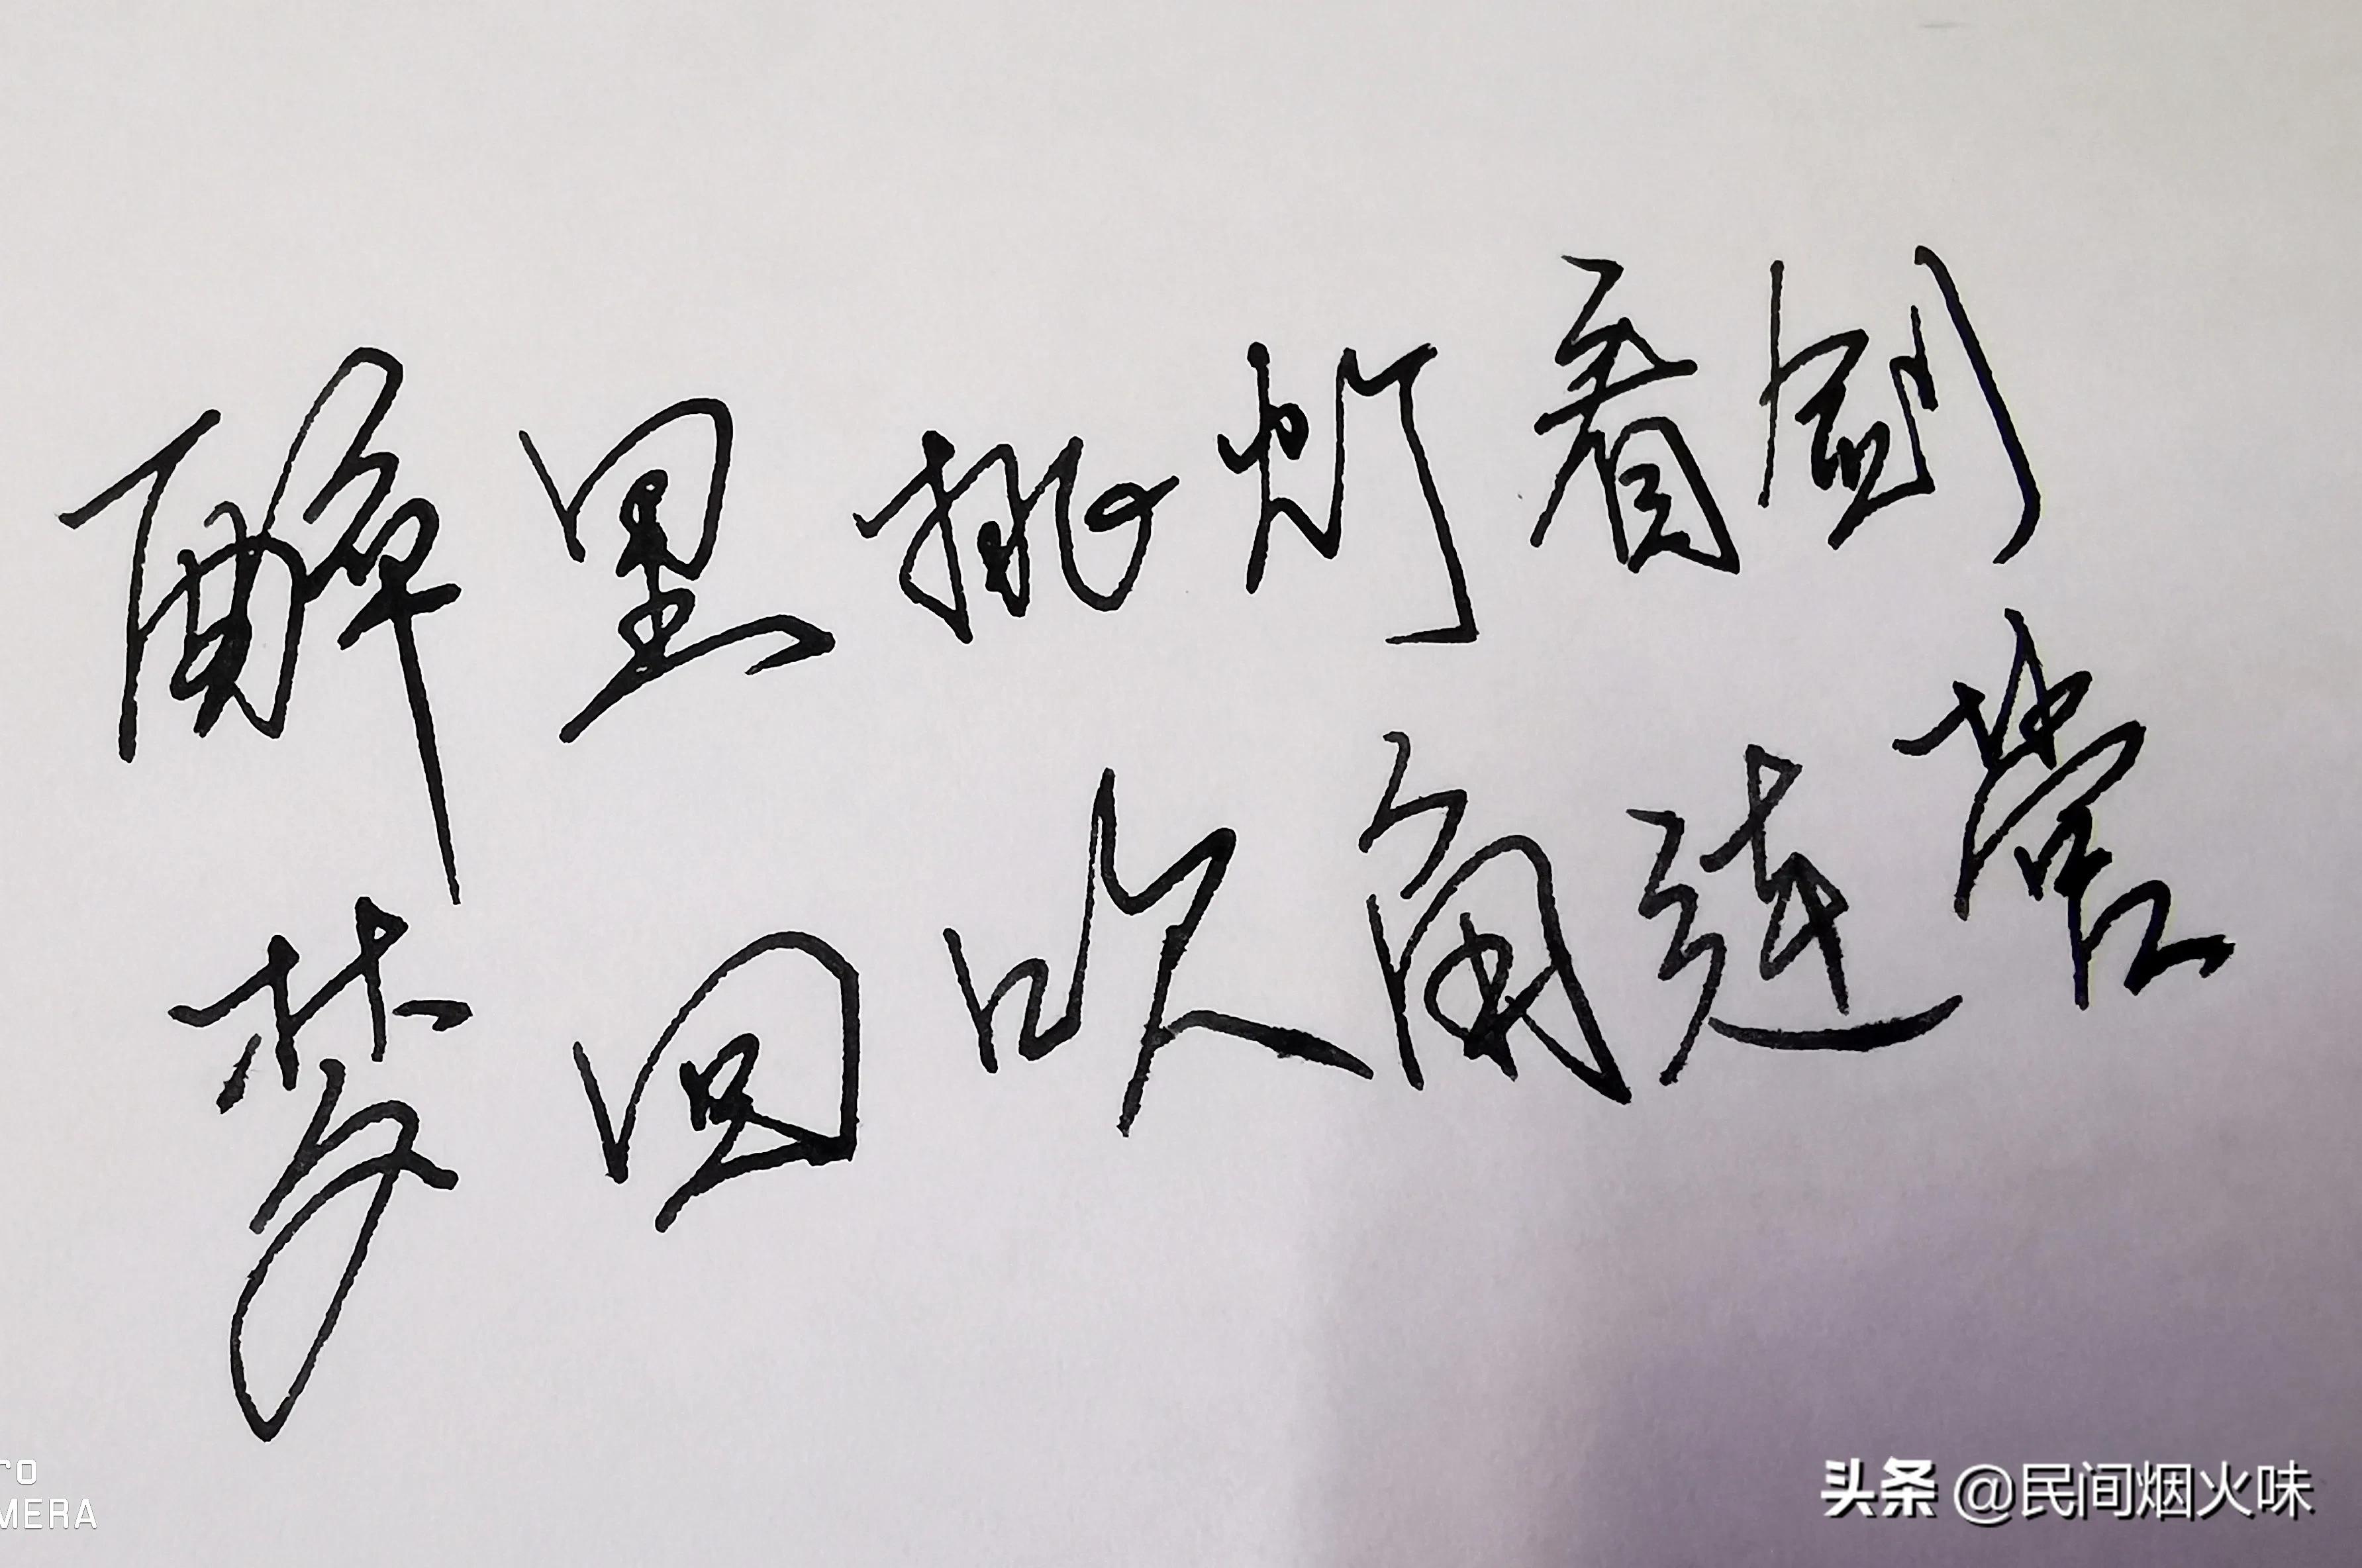 醉里挑灯看剑
梦回吹角连营
TO
MERA
头条 @民间烟火味